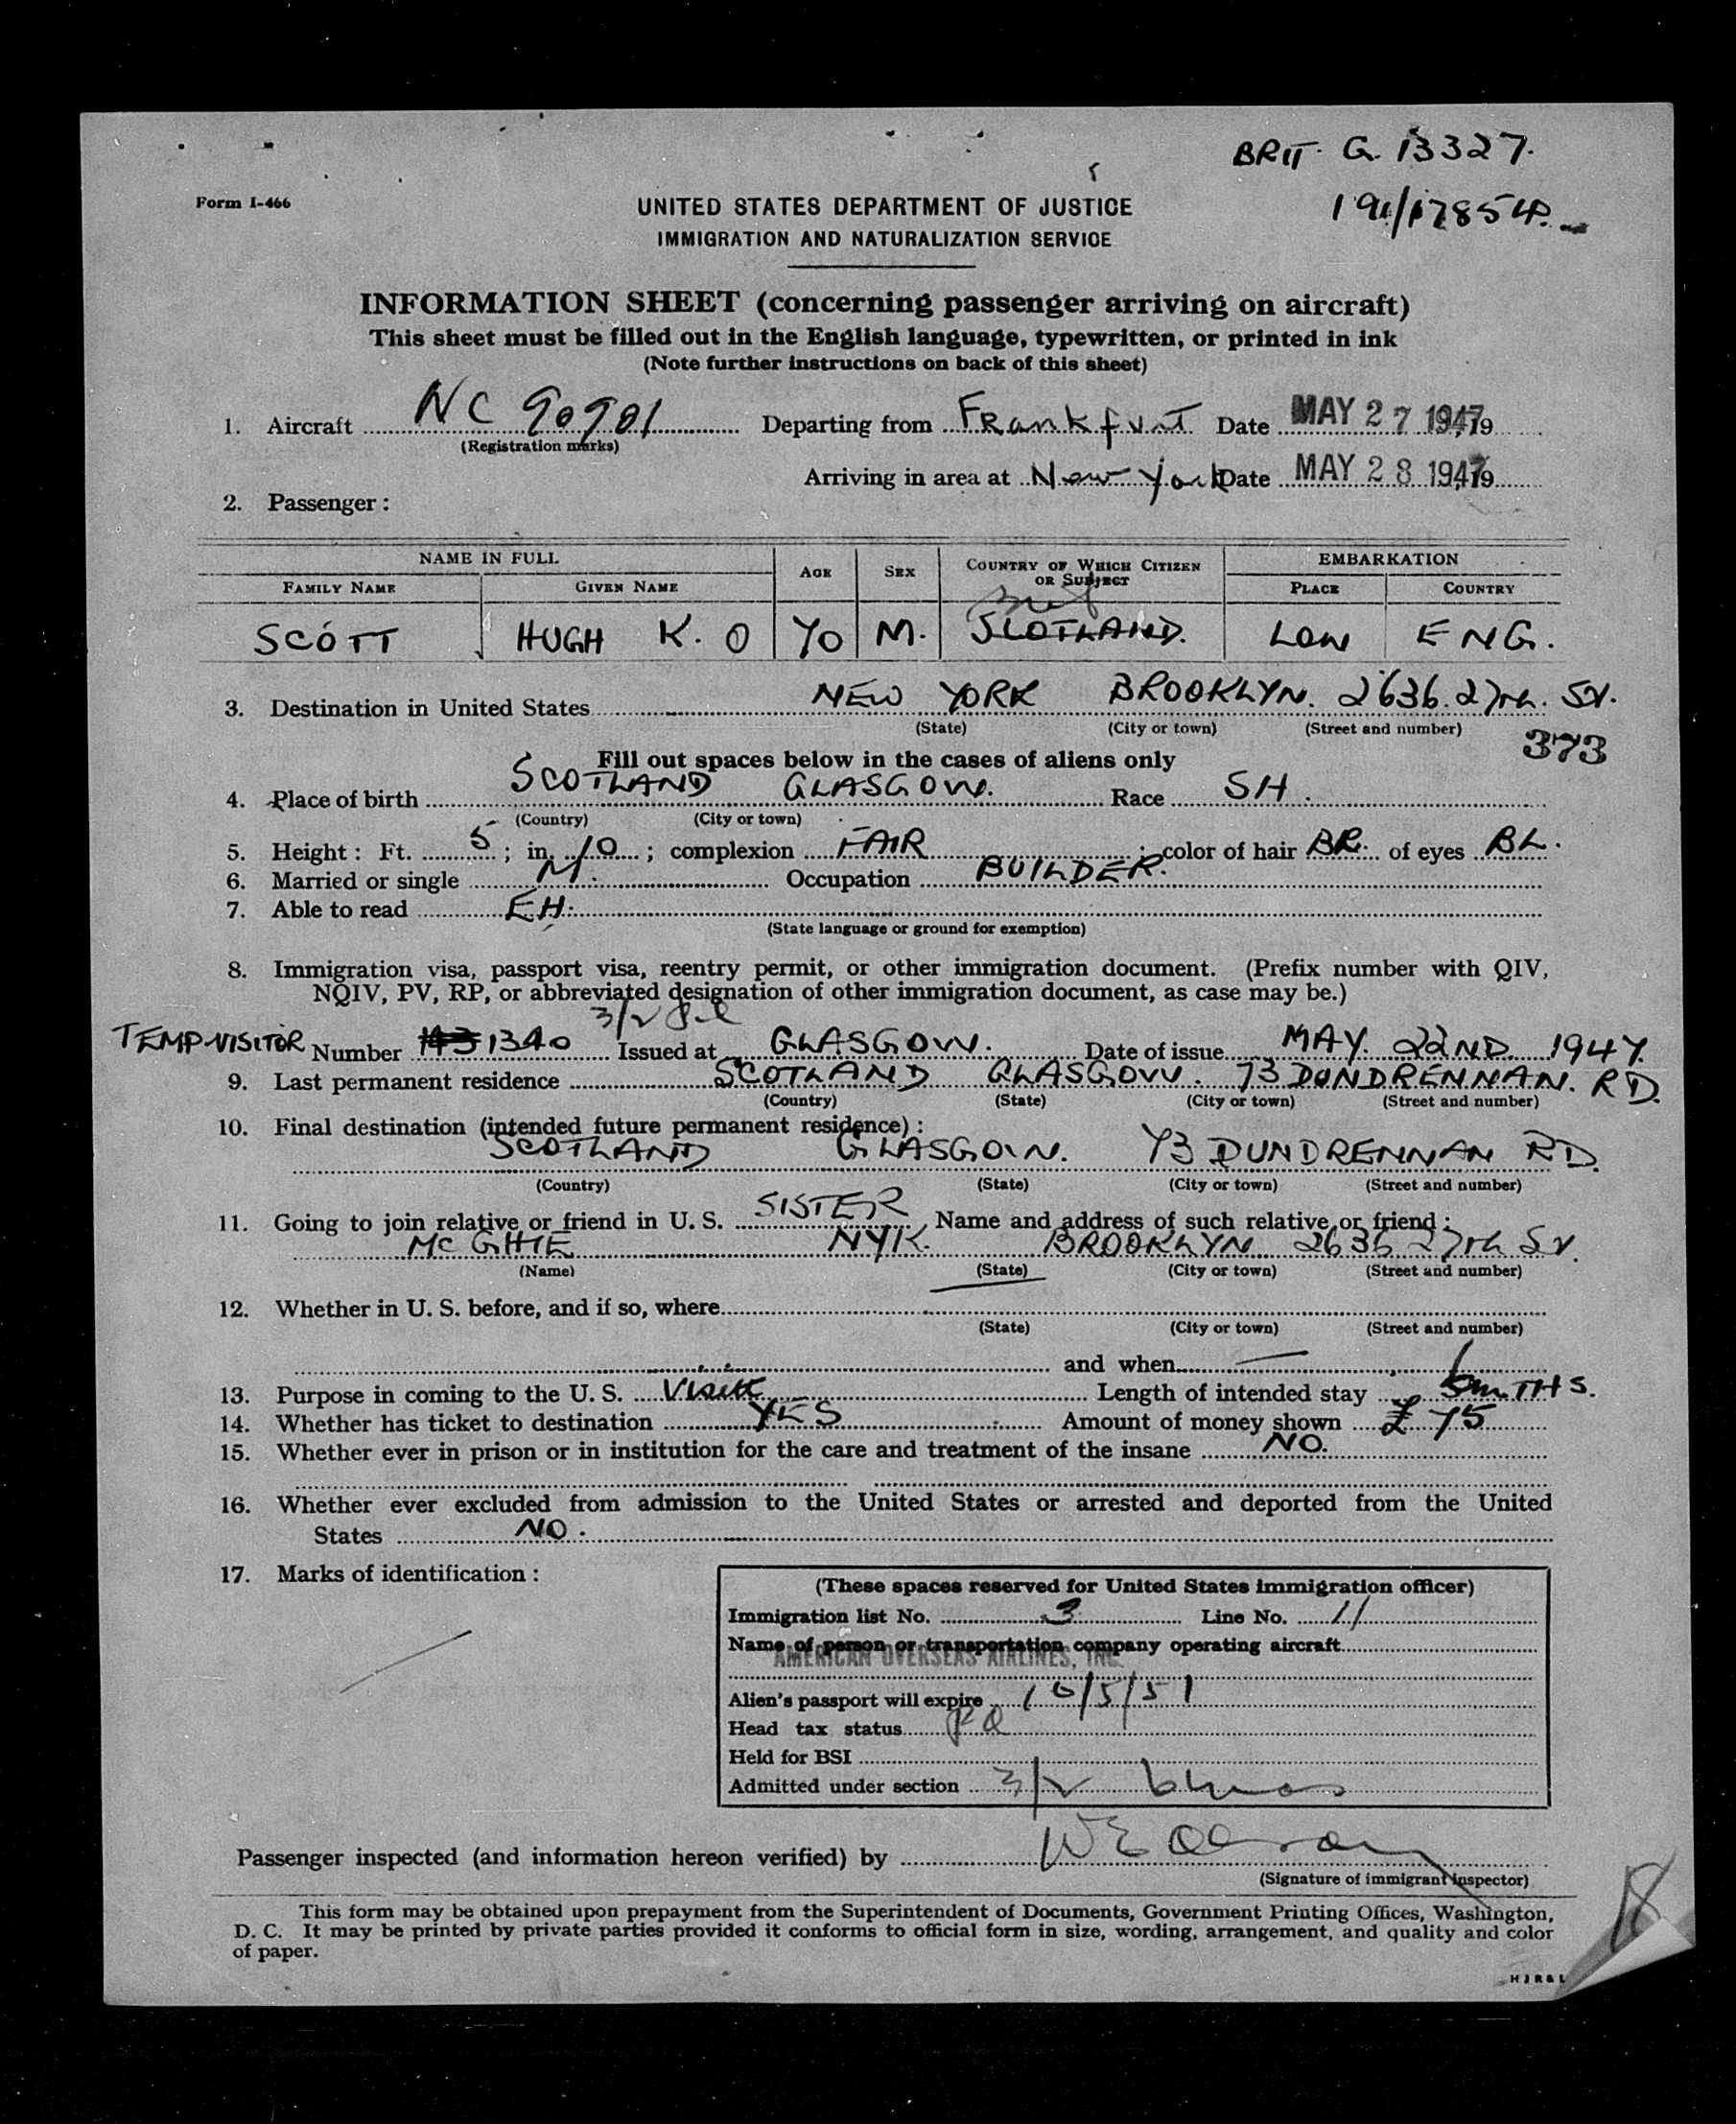 BRIT. G. 13327.
Form I-466
UNITED STATES DEPARTMENT OF JUSTICE
IMMIGRATION AND NATURALIZATION SERVICE
INFORMATION SHEET (concerning passenger arriving on aircraft)
This sheet must be filled out in the English language, typewritten, or printed in ink
(Note further instructions on back of this sheet)
1. Aircraft NC 90901 Departing from Frankfurt Date MAY 27 1947, 19
(Registration marks)
Arriving in area at New York Date MAY 28 1947, 19
2. Passenger:
NAME IN FULL AGE SEX COUNTRY OF WHICH CITIZEN OR SUBJECT EMBARKATION
FAMILY NAME GIVEN NAME PLACE COUNTRY
SCOTT HUGH K. O 40 M. SCOTLAND. LON ENG.
3. Destination in United States NEW YORK BROOKLYN. 2636. 27TH. ST.
(State) (City or town) (Street and number)
373
Fill out spaces below in the cases of aliens only
4. Place of birth SCOTLAND GLASGOW. Race SH.
(Country) (City or town)
5. Height: Ft. 5; in. 10; complexion FAIR; color of hair BR. of eyes BL.
6. Married or single M. Occupation BUILDER.
7. Able to read EH.
(State language or ground for exemption)
8. Immigration visa, passport visa, reentry permit, or other immigration document. (Prefix number with QIV,
NQIV, PV, RP, or abbreviated designation of other immigration document, as case may be.)
3/2
TEMP-VISITOR Number 1340 Issued at GLASGOW. Date of issue MAY. 22ND. 1947.
9. Last permanent residence SCOTLAND GLASGOW. 73 DUNDRENNAN. RD.
(Country) (State) (City or town) (Street and number)
10. Final destination (intended future permanent residence):
SCOTLAND GLASGOW. 73 DUNDRENNAN RD.
(Country) (State) (City or town) (Street and number)
11. Going to join relative or friend in U. S. SISTER Name and address of such relative or friend:
MC GHIE NYK. BROOKLYN 2636 27TH ST.
(Name) (State) (City or town) (Street and number)
12. Whether in U. S. before, and if so, where
(State) (City or town) (Street and number)
and when —
13. Purpose in coming to the U. S. Visit Length of intended stay MTHS.
14. Whether has ticket to destination YES Amount of money shown £ 75
15. Whether ever in prison or in institution for the care and treatment of the insane NO.
16. Whether ever excluded from admission to the United States or arrested and deported from the United
States NO.
17. Marks of identification:
(These spaces reserved for United States immigration officer)
Immigration list No. 3 Line No. 11
Name of person or transportation company operating aircraft
AMERICAN OVERSEAS AIRLINES, INC.
Alien's passport will expire 10/5/51
Head tax status
Held for BSI
Admitted under section 3/2 6 mos
Passenger inspected (and information hereon verified) by
(Signature of immigrant inspector)
This form may be obtained upon prepayment from the Superintendent of Documents, Government Printing Offices, Washington,
D. C. It may be printed by private parties provided it conforms to official form in size, wording, arrangement, and quality and color
of paper.
H J R & L